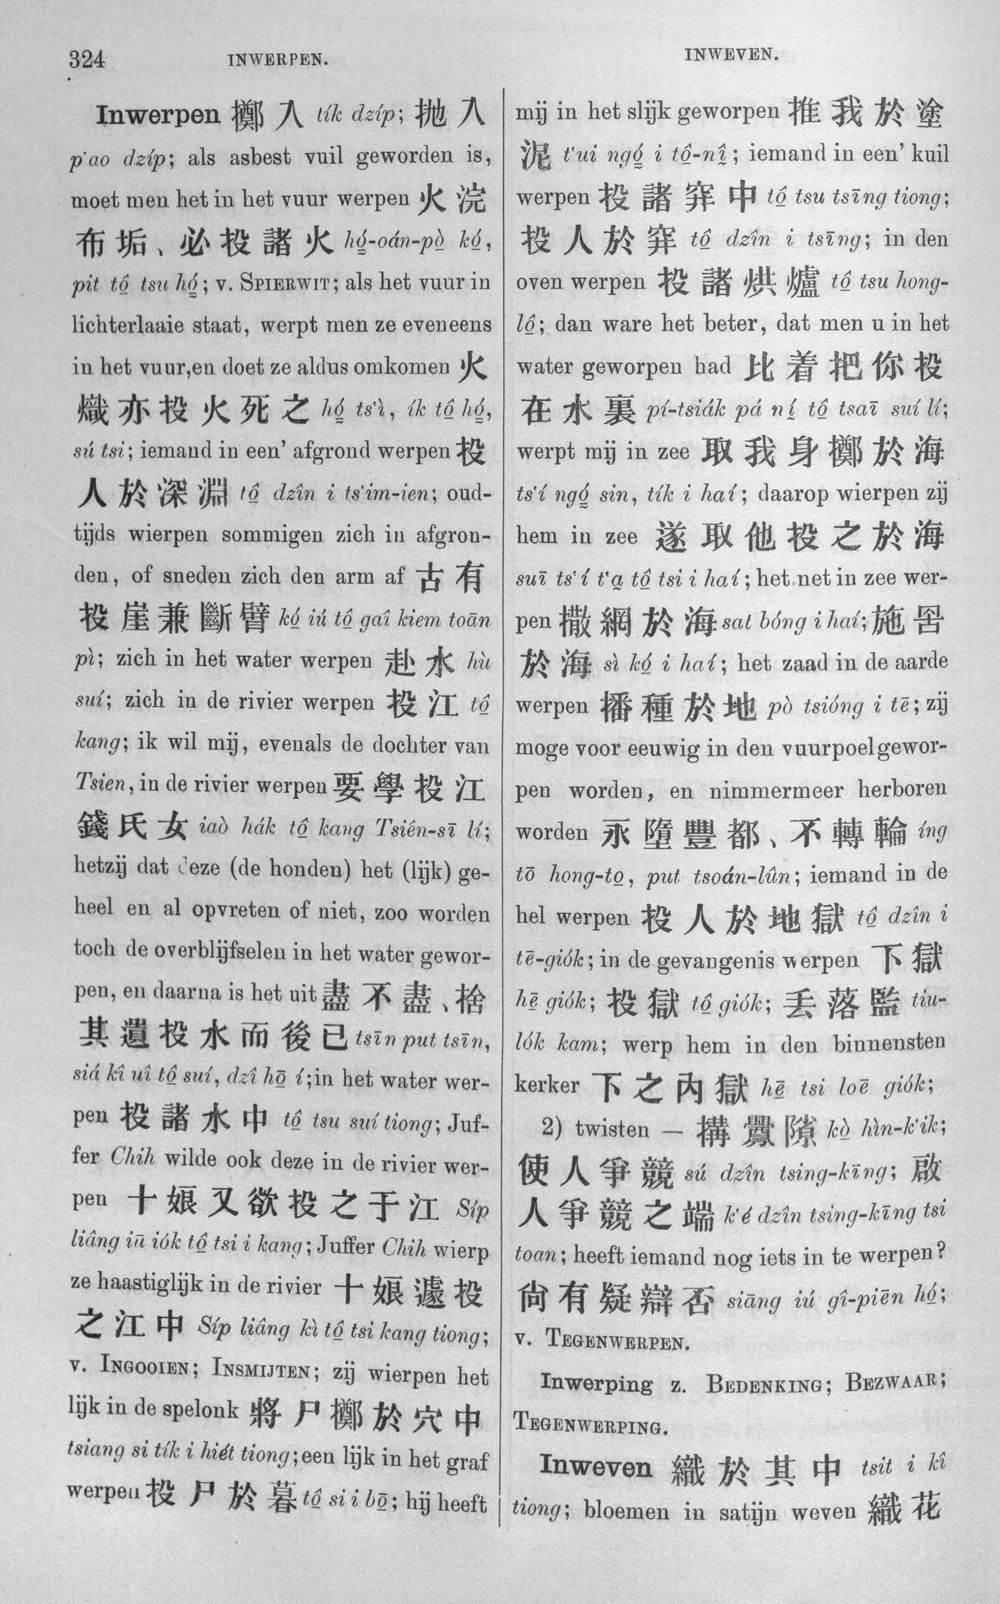 324
INWERPEN.
INWEVEN.
Inwerpen 擲入 tík dzíp; 抛入
p'ao dzíp; als asbest vuil geworden is,
moet men het in het vuur werpen 火浣
布垢、必投諸火 hó̤-oán-pò͘ kó͘,
pit tô͘ tsu hó̤; v. SPIERWIT; als het vuur in
lichterlaaie staat, werpt men ze eveneens
in het vuur, en doet ze aldus omkomen 火
熾亦投火死之 hó̤ ts'ì, ík tô͘ hó̤,
sú tsi; iemand in een' afgrond werpen 投
人於深淵 tô͘ dzîn i ts'im-ien; oud-
tijds wierpen sommigen zich in afgron-
den, of sneden zich den arm af 古有
投崖兼斷臂 kó͘ iú tô͘ gaî kiem toān
pì; zich in het water werpen 赴水 hù
suí; zich in de rivier werpen 投江 tô͘
kang; ik wil mij, evenals de dochter van
Tsien, in de rivier werpen 要學投江
錢氏女 iaò hák tô͘ kang Tsiên-sī lí;
hetzij dat deze (de honden) het (lijk) ge-
heel en al opvreten of niet, zoo worden
toch de overblijfselen in het water gewor-
pen, en daarna is het uit 盡不盡、捨
其遺投水而後已 tsīn put tsīn,
siá kî uî tô͘ suí, dzî hō͘ í; in het water wer-
pen 投諸水中 tô͘ tsu suí tiong; Juf-
fer Chih wilde ook deze in de rivier wer-
pen 十娘又欲投之于江 Síp
liâng iū iók tô͘ tsi i kang; Juffer Chih wierp
ze haastiglijk in de rivier 十娘遽投
之江中 Síp liâng kì tô͘ tsi kang tiong;
v. INGOOIEN; INSMIJTEN; zij wierpen het
lijk in de spelonk 將尸擲於穴中
tsiang si tík i hiét tiong; een lijk in het graf
werpen 投尸於暮 tô͘ si i bō͘; hij heeft
mij in het slijk geworpen 推我於塗
泥 t'ui ngó̤ i tô͘-nî; iemand in een' kuil
werpen 投諸穽中 tô͘ tsu tsīng tiong;
投人於穽 tô͘ dzîn i tsīng; in den
oven werpen 投諸烘爐 tô͘ tsu hong-
lô͘; dan ware het beter, dat men u in het
water geworpen had 比着把你投
在水裏 pí-tsiák pá ní tô͘ tsaī suí lí;
werpt mij in zee 取我身擲於海
ts'í ngó̤ sin, tík i haí; daarop wierpen zij
hem in zee 遂取他投之於海
suī ts'í t'a̤ tô͘ tsi i haí; het net in zee wer-
pen 撒網於海 sat bóng i haí; 施罟
於海 sì kó͘ i haí; het zaad in de aarde
werpen 播種於地 pò tsióng i tē; zij
moge voor eeuwig in den vuurpoel gewor-
pen worden, en nimmermeer herboren
worden 永墮豐都、不轉輪 íng
tō hong-to͘, put tsoán-lûn; iemand in de
hel werpen 投人於地獄 tô͘ dzîn i
tē-giók; in de gevangenis werpen 下獄
hē̤ giók; 投獄 tô͘ giók; 丟落監 tiu-
lók kam; werp hem in den binnensten
kerker 下之內獄 hē̤ tsi loē giók;
2) twisten — 搆釁隙 kò͘ hìn-k'ik;
使人爭競 sú dzîn tsing-kīng; 啟
人爭競之端 k'é dzîn tsing-kīng tsi
toan; heeft iemand nog iets in te werpen?
尙有疑辯否 siāng iú gî-piēn hó͘;
v. TEGENWERPEN.
Inwerping z. BEDENKING; BEZWAAR;
TEGENWERPING.
Inweven 織於其中 tsit i kî
tiong; bloemen in satijn weven 織花